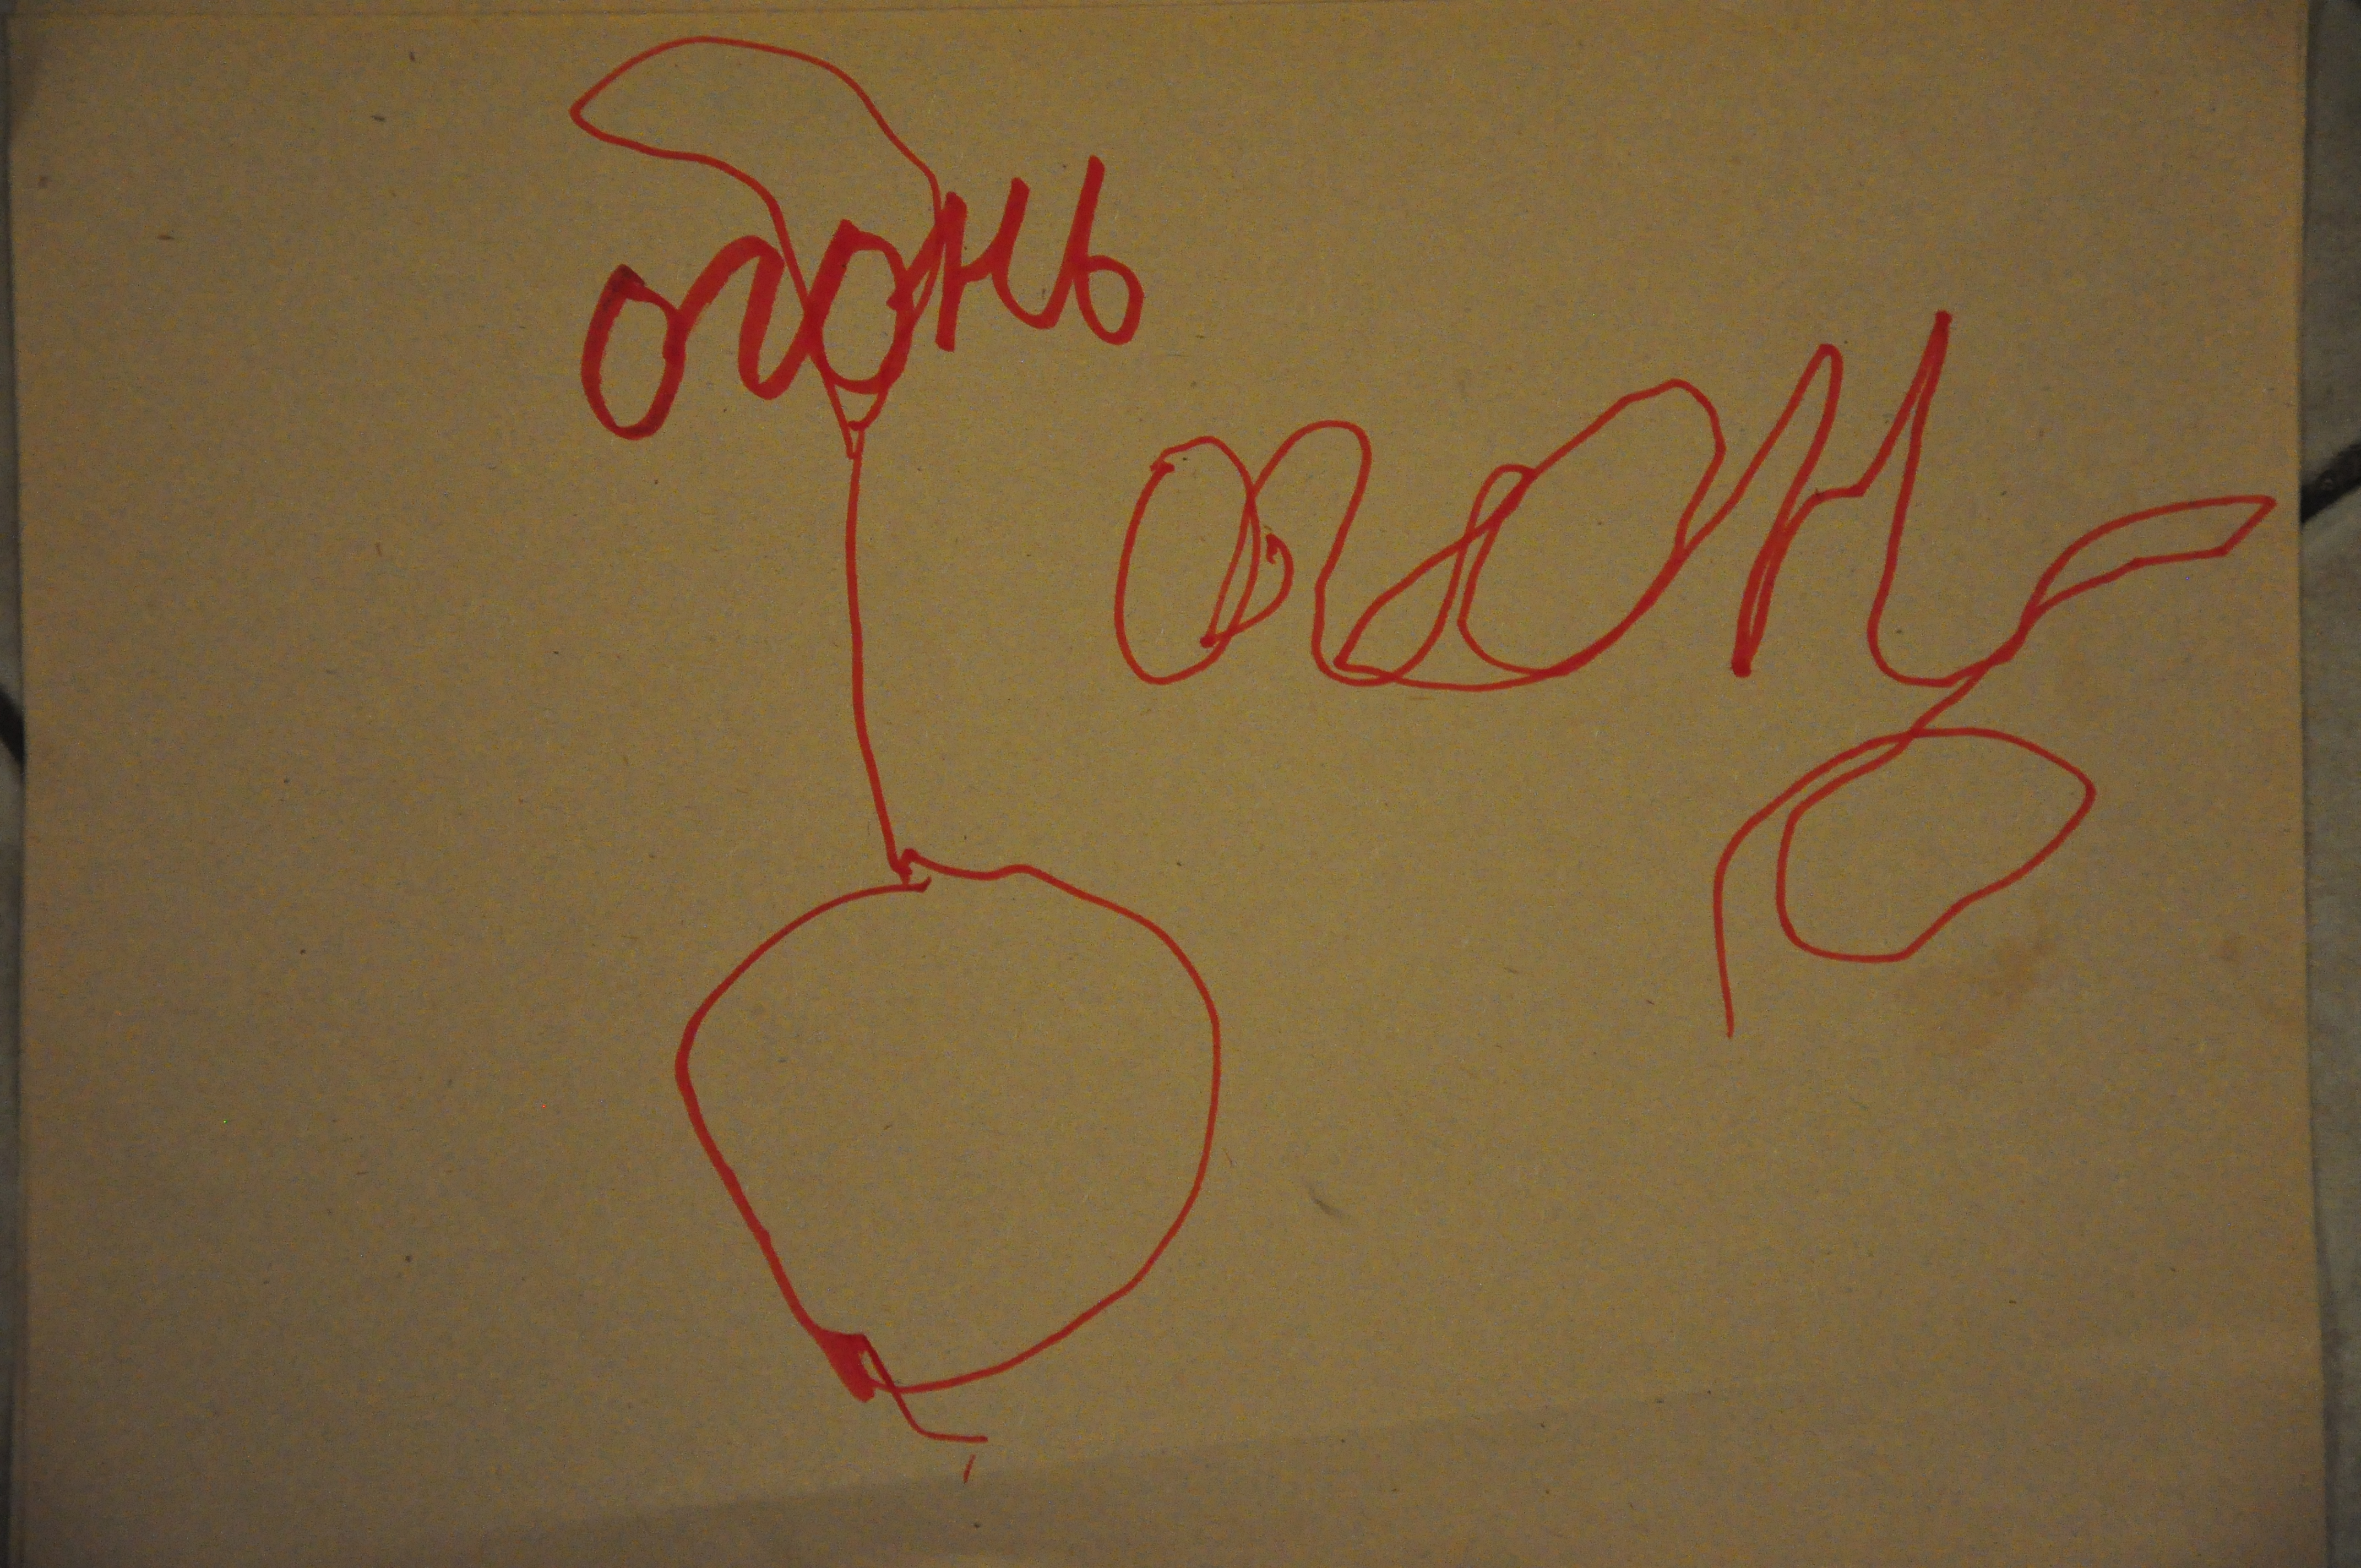 огонь
огонь